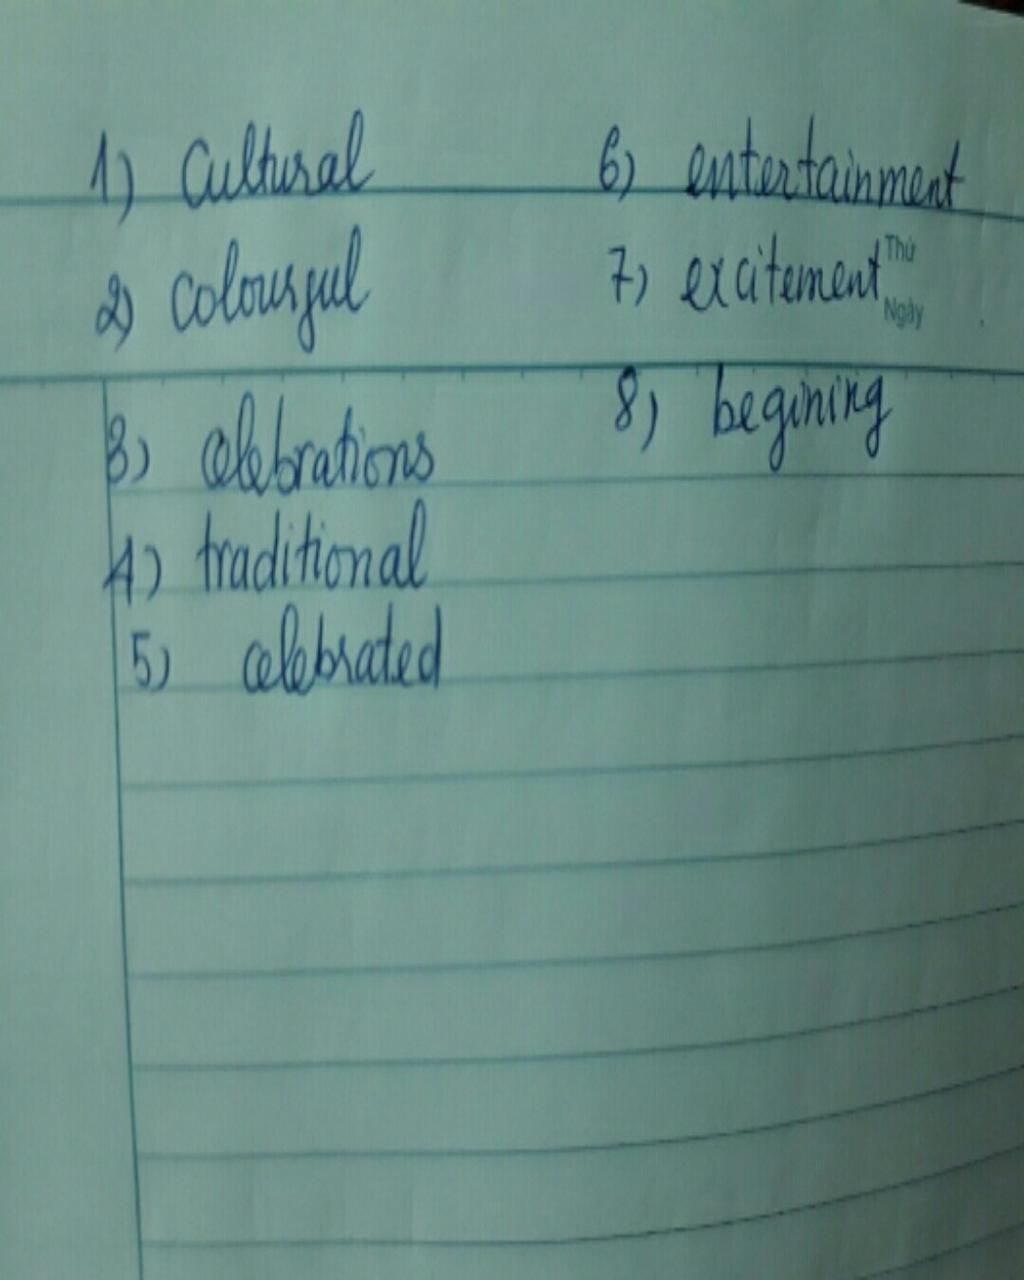 1) Cultural
2) colourful
3) celebrations
4) traditional
5) celebrated
6) entertainment
7) excitement
Thứ
Ngày
8) begining